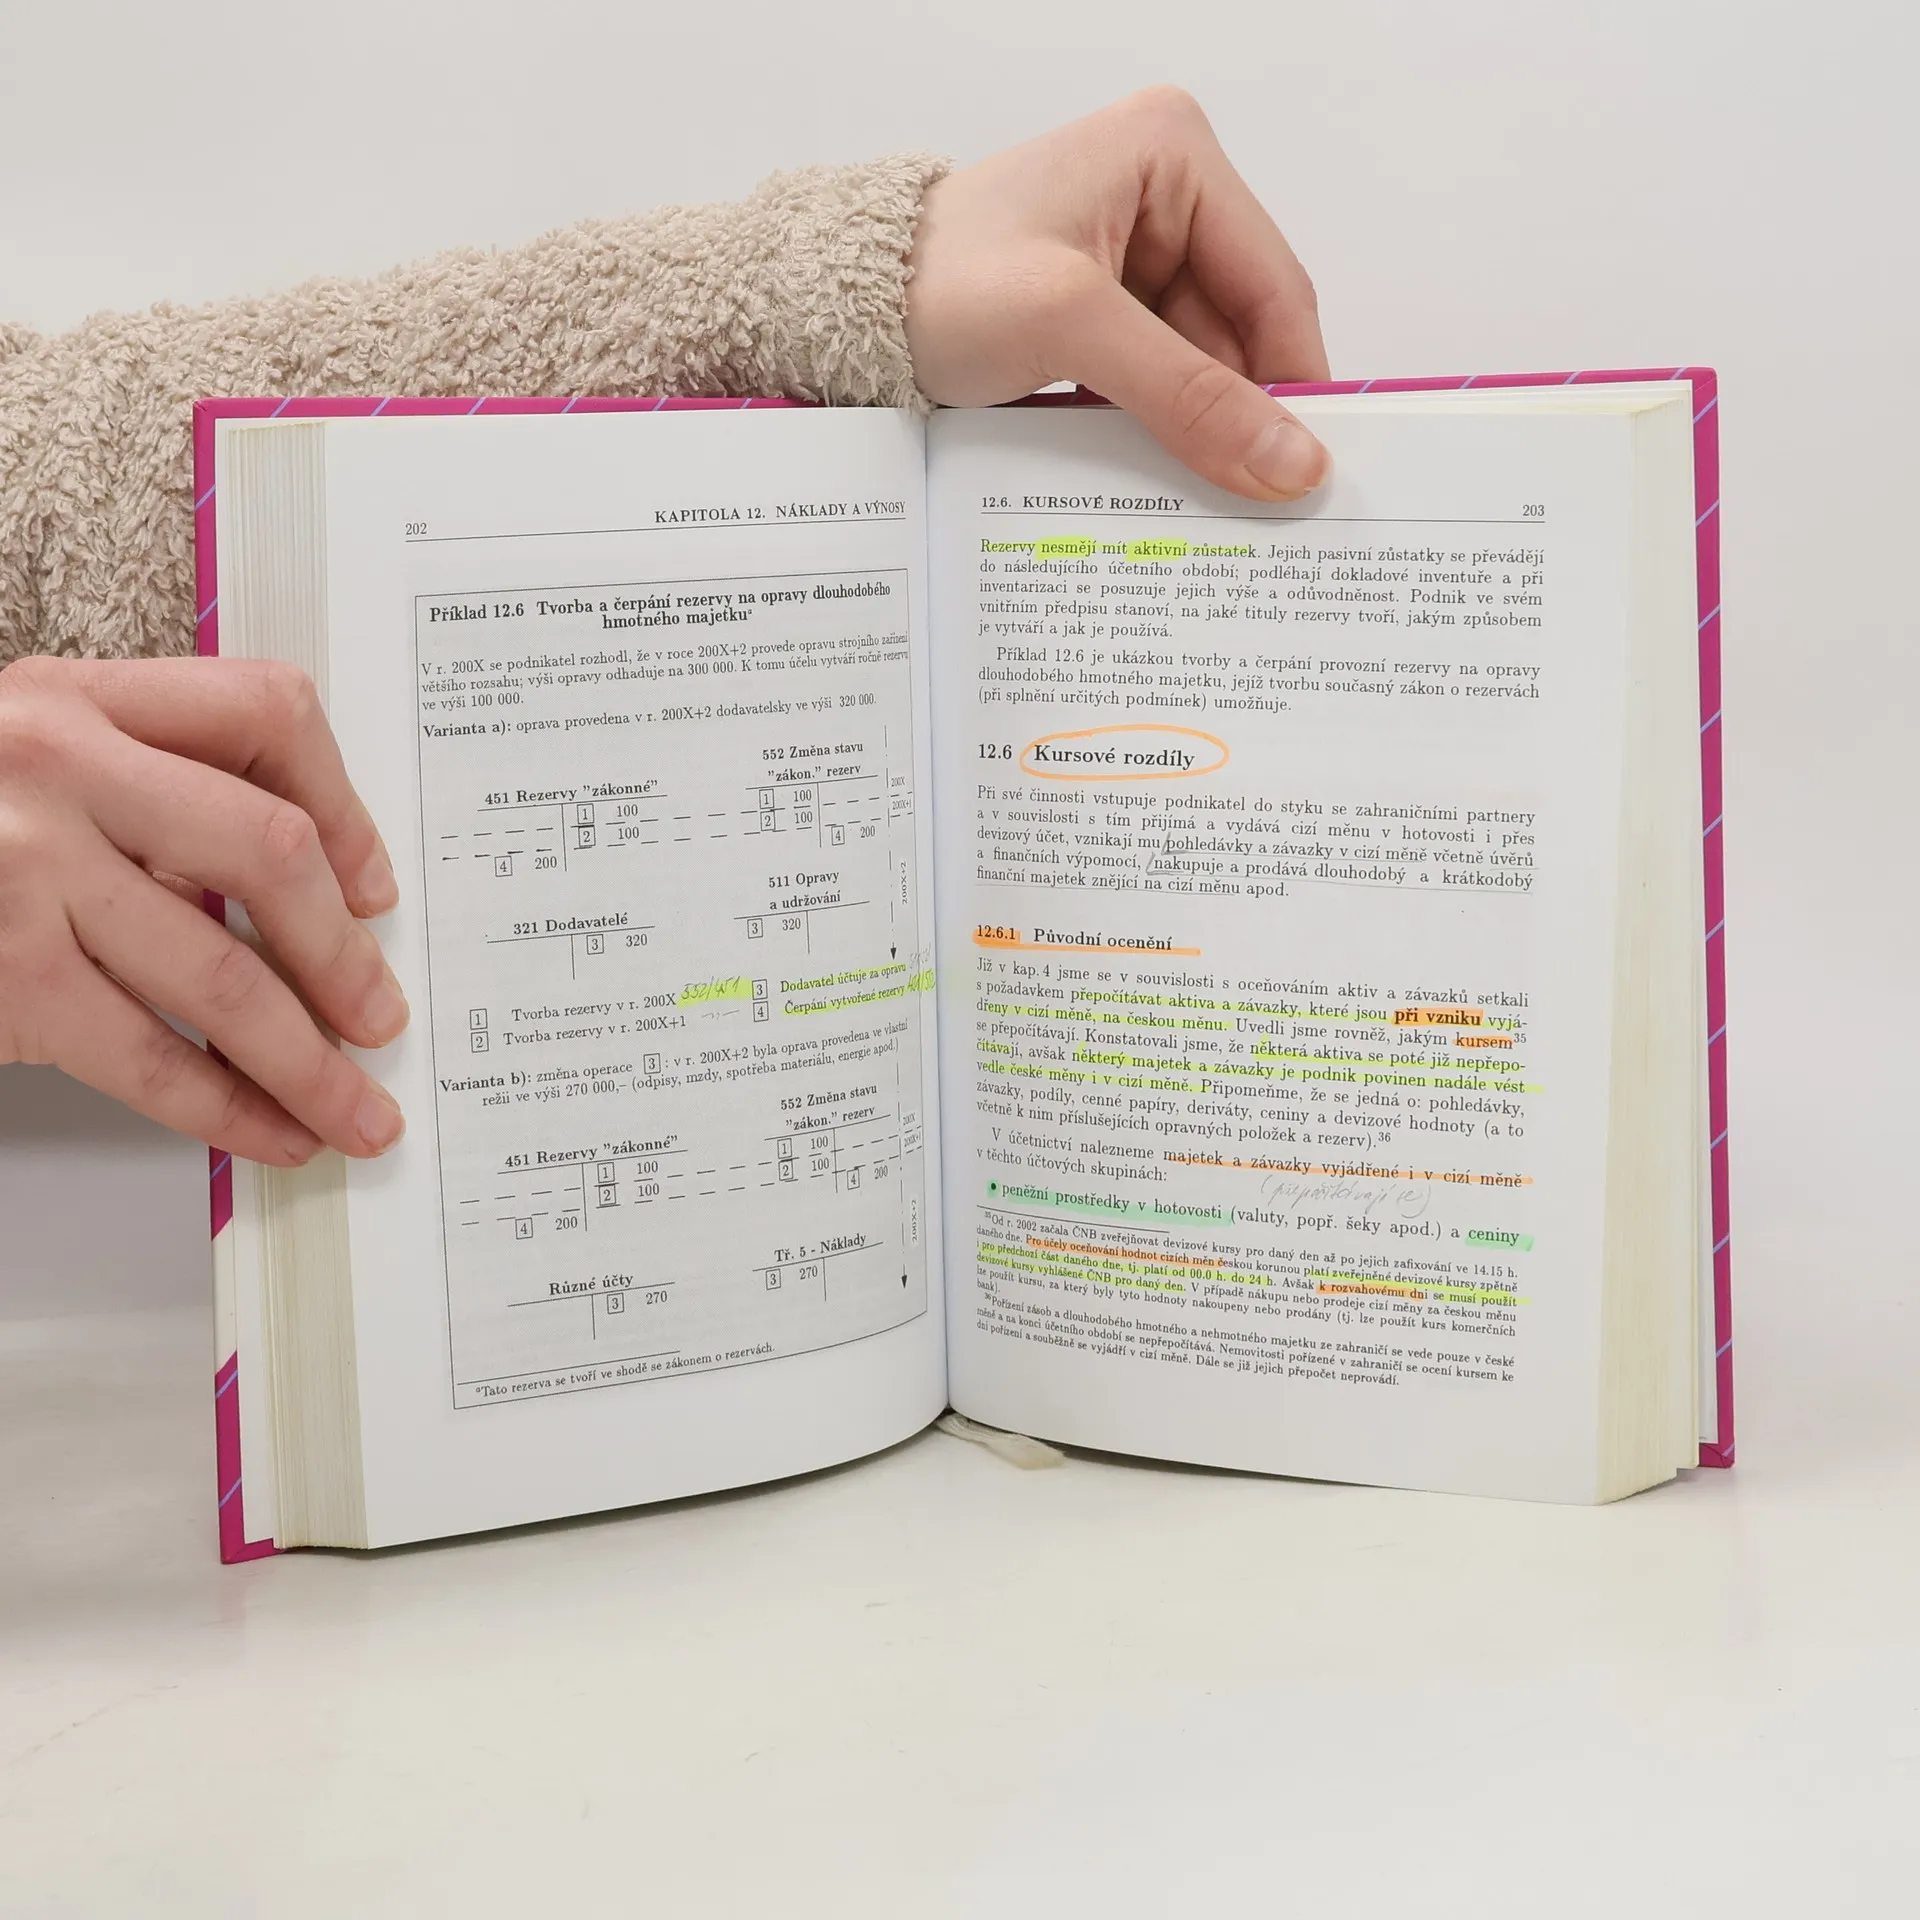 202
KAPITOLA 12. NÁKLADY A VÝNOSY
Příklad 12.6 Tvorba a čerpání rezervy na opravy dlouhodobého
hmotného majetkuᵃ
V r. 200X se podnikatel rozhodl, že v roce 200X+2 provede opravu strojního zařízení
většího rozsahu; výši opravy odhaduje na 300 000. K tomu účelu vytváří ročně rezervu
ve výši 100 000.
Varianta a): oprava provedena v r. 200X+2 dodavatelsky ve výši 320 000.
451 Rezervy "zákonné"
1 100
2 100
4 200
552 Změna stavu
"zákon." rezerv
1 100
2 100
4 200
200X
200X+1
200X+2
321 Dodavatelé
3 320
511 Opravy
a udržování
3 320
1 Tvorba rezervy v r. 200X 552/451
2 Tvorba rezervy v r. 200X+1
3 Dodavatel účtuje za opravu
4 Čerpání vytvořené rezervy
Varianta b): změna operace 3 : v r. 200X+2 byla oprava provedena ve vlastní
režii ve výši 270 000,– (odpisy, mzdy, spotřeba materiálu, energie apod.)
451 Rezervy "zákonné"
1 100
2 100
4 200
552 Změna stavu
"zákon." rezerv
1 100
2 100
4 200
200X
200X+1
200X+2
Různé účty
3 270
Tř. 5 - Náklady
3 270
ᵃTato rezerva se tvoří ve shodě se zákonem o rezervách.
12.6. KURSOVÉ ROZDÍLY
203
Rezervy nesmějí mít aktivní zůstatek. Jejich pasivní zůstatky se převádějí
do následujícího účetního období; podléhají dokladové inventuře a při
inventarizaci se posuzuje jejich výše a odůvodněnost. Podnik ve svém
vnitřním předpisu stanoví, na jaké tituly rezervy tvoří, jakým způsobem
je vytváří a jak je používá.
Příklad 12.6 je ukázkou tvorby a čerpání provozní rezervy na opravy
dlouhodobého hmotného majetku, jejíž tvorbu současný zákon o rezervách
(při splnění určitých podmínek) umožňuje.
12.6 Kursové rozdíly
Při své činnosti vstupuje podnikatel do styku se zahraničními partnery
a v souvislosti s tím přijímá a vydává cizí měnu v hotovosti i přes
devizový účet, vznikají mu pohledávky a závazky v cizí měně včetně úvěrů
a finančních výpomocí, nakupuje a prodává dlouhodobý a krátkodobý
finanční majetek znějící na cizí měnu apod.
12.6.1 Původní ocenění
Již v kap. 4 jsme se v souvislosti s oceňováním aktiv a závazků setkali
s požadavkem přepočítávat aktiva a závazky, které jsou při vzniku vyjá-
dřeny v cizí měně, na českou měnu. Uvedli jsme rovněž, jakým kursem³⁵
se přepočítávají. Konstatovali jsme, že některá aktiva se poté již nepřepo-
čítávají, avšak některý majetek a závazky je podnik povinen nadále vést
vedle české měny i v cizí měně. Připomeňme, že se jedná o: pohledávky,
závazky, podíly, cenné papíry, deriváty, ceniny a devizové hodnoty (a to
včetně k nim příslušejících opravných položek a rezerv).³⁶
V účetnictví nalezneme majetek a závazky vyjádřené i v cizí měně
v těchto účtových skupinách:
(přepočítávají se)
• peněžní prostředky v hotovosti (valuty, popř. šeky apod.) a ceniny
³⁵Od r. 2002 začala ČNB zveřejňovat devizové kursy pro daný den až po jejich zafixování ve 14.15 h.
daného dne. Pro účely oceňování hodnot cizích měn českou korunou platí zveřejněné devizové kursy zpětně
i pro předchozí část daného dne, tj. platí od 00.0 h. do 24 h. Avšak k rozvahovému dni se musí použít
devizové kursy vyhlášené ČNB pro daný den. V případě nákupu nebo prodeje cizí měny za českou měnu
lze použít kursu, za který byly tyto hodnoty nakoupeny nebo prodány (tj. lze použít kurs komerčních
bank).
³⁶Pořízení zásob a dlouhodobého hmotného a nehmotného majetku ze zahraničí se vede pouze v české
měně a na konci účetního období se nepřepočítává. Nemovitosti pořízené v zahraničí se ocení kursem ke
dni pořízení a souběžně se vyjádří v cizí měně. Dále se již jejich přepočet neprovádí.